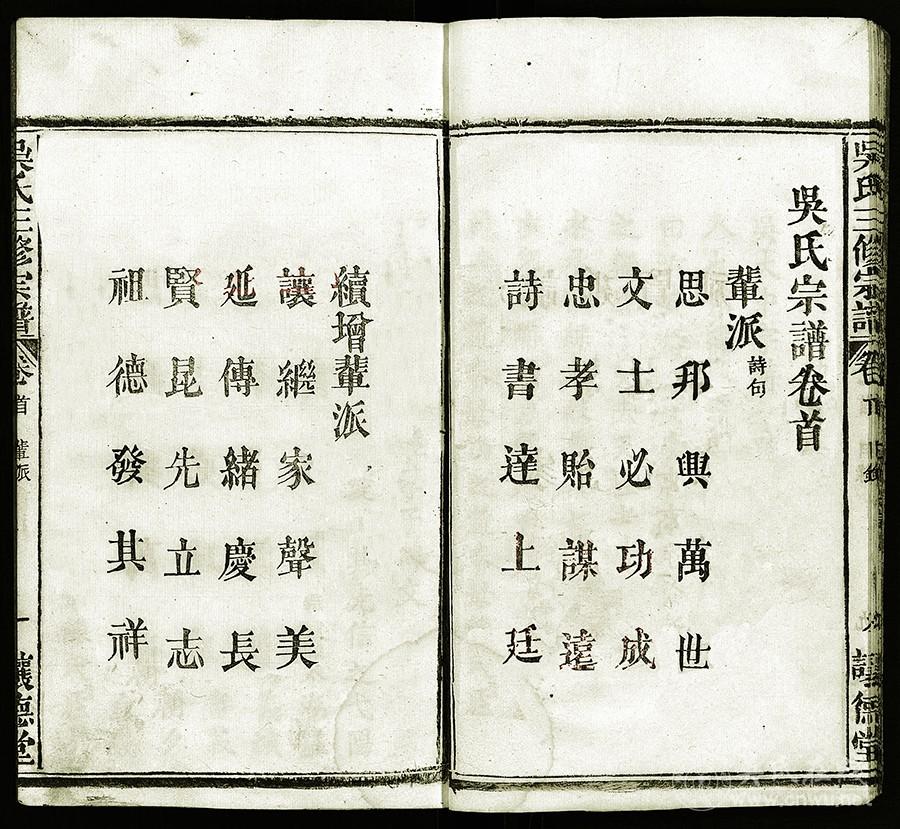 吳氏三修宗譜
吳氏宗譜卷首
輩派詩句
思邦興萬世
文士必功成
忠孝貽謀遠
詩書達上廷
續增輩派
讓繼家聲美
延傳緒慶長
賢昆先立志
祖德發其祥
吳氏三修宗譜
卷首
輩派
一
讓德堂